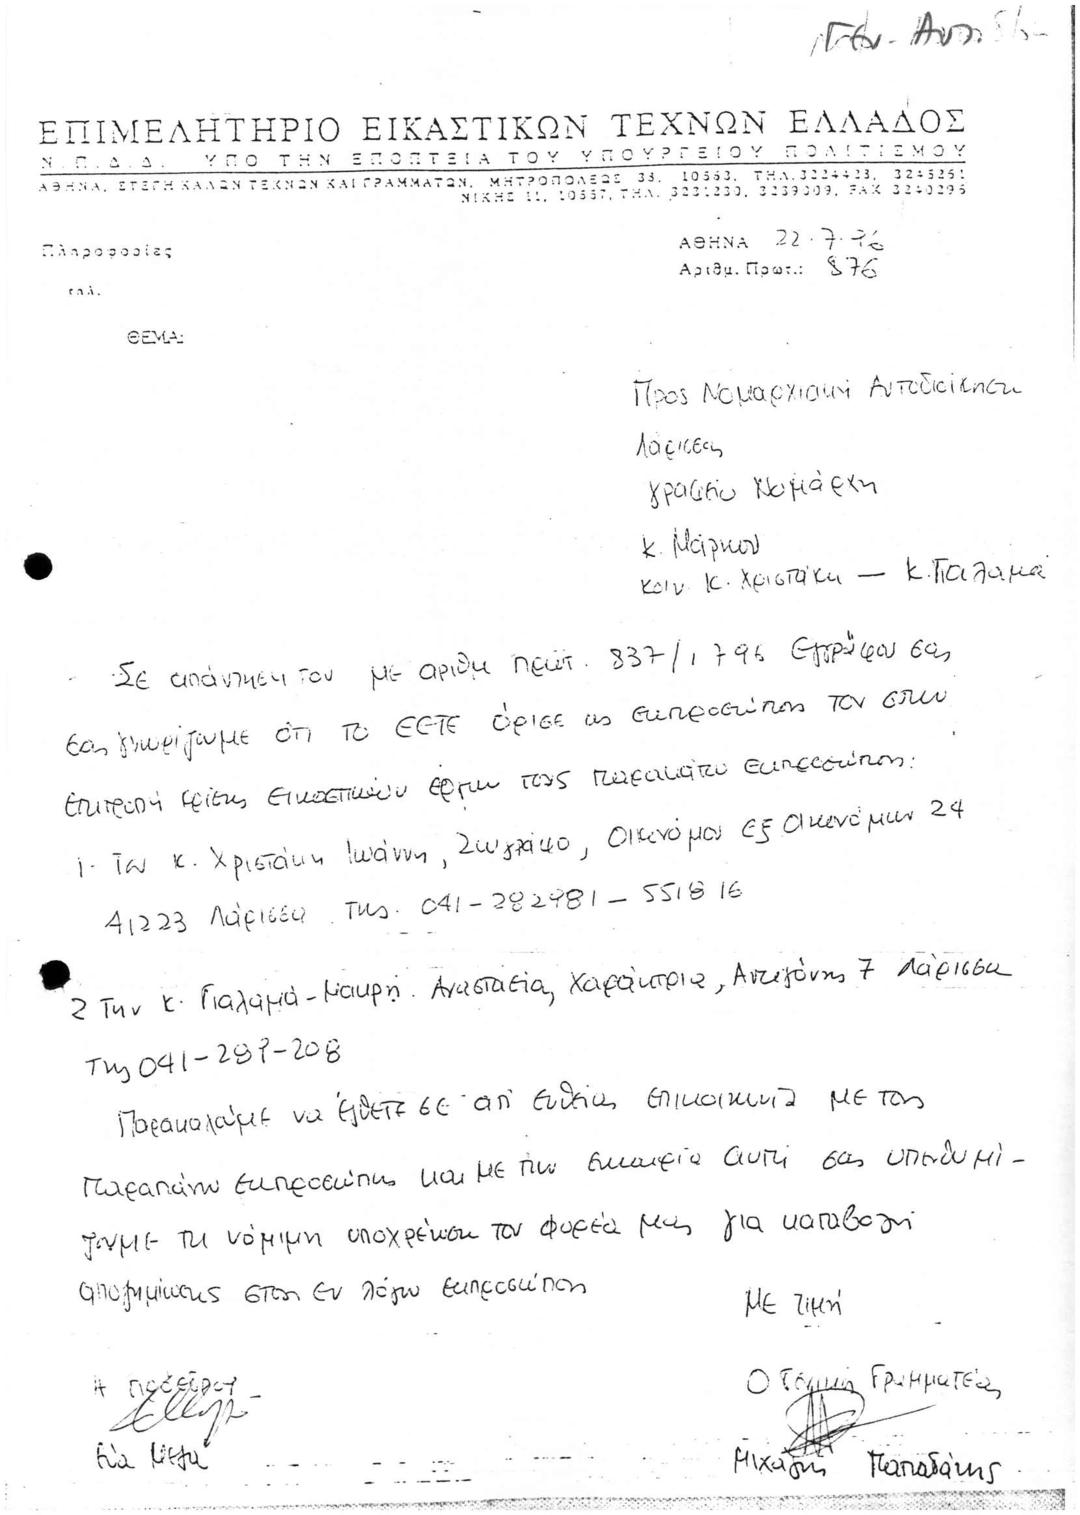 Γεν. Αυλ.
ΕΠΙΜΕΛΗΤΗΡΙΟ ΕΙΚΑΣΤΙΚΩΝ ΤΕΧΝΩΝ ΕΛΛΑΔΟΣ
Ν.Π.Δ.Δ. ΥΠΟ ΤΗΝ ΕΠΟΠΤΕΙΑ ΤΟΥ ΥΠΟΥΡΓΕΙΟΥ ΠΟΛΙΤΙΣΜΟΥ
ΑΘΗΝΑ, ΣΤΕΓΗ ΚΑΛΩΝ ΤΕΧΝΩΝ ΚΑΙ ΓΡΑΜΜΑΤΩΝ, ΜΗΤΡΟΠΟΛΕΩΣ 38, 10563, ΤΗΛ.3224423, 3245251
ΝΙΚΗΣ 11, 10557, ΤΗΛ. 3231230, 3239009, FAX 3240296
Πληροφορίες
ΑΘΗΝΑ 22.7.96
Αριθμ. Πρωτ.: 876
τηλ.
ΘΕΜΑ:
Προς Νομαρχιακή Αυτοδιοίκηση
Λάρισας
γραφείο Νομάρχη
κ. Μάρκου
κοιν κ. Χριστάκη — κ. Γιαλαμά
Σε απάντηση του με αριθμ πρωτ. 837/1 7 96 Εγγράφου σας
σας γνωρίζουμε ότι το ΕΕΤΕ όρισε ως εκπροσώπους του στην
Επιτροπή κρίσης εικαστικών έργων τους παρακάτω εκπροσώπους:
1. Τον κ. Χριστάκη Ιωάννη, Ζωγράφο, Οικονόμου εξ Οικονόμων 24
41223 Λάρισα Της. 041-282981-551816
2 Την κ. Γιαλαμά-Μακρή. Αναστασία, Χαράκτρια, Αντιγόνης 7 Λάρισσα
Της 041-289-208
Παρακαλούμε να έλθετε σε απ ευθείας επικοινωνία με τους
παραπάνω εκπροσώπους και με την ευκαιρία αυτή σας υπενθυμί-
ζουμε τη νόμιμη υποχρέωση του φορέα μας για καταβολή
αποζημίωσης στους εν λόγω εκπροσώπους
Με τιμή
Η πρόεδρος
Ο Γενική Γραμματέας
Εύα Μελά
Μιχάλης Παπαδάκης